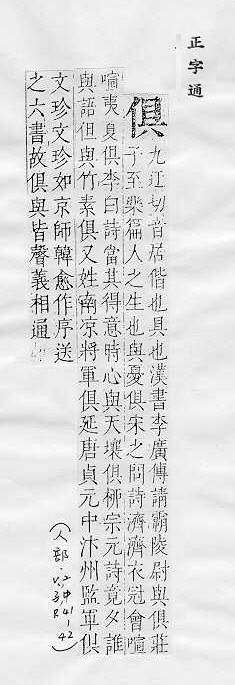 正字通
俱 九迂切音居偕也具也漢書李廣傳請霸陵尉與俱莊
子至樂篇人之生也與憂俱宋之問詩濟濟衣冠會喧
喧夷夏俱李白詩當其得意時心與天壤俱柳宗元詩竟夕誰
與語但與竹素俱又姓南凉將軍俱延唐貞元中汴州監軍俱
文珍文珍如京師韓愈作序送
之六書故俱與皆聲義相通